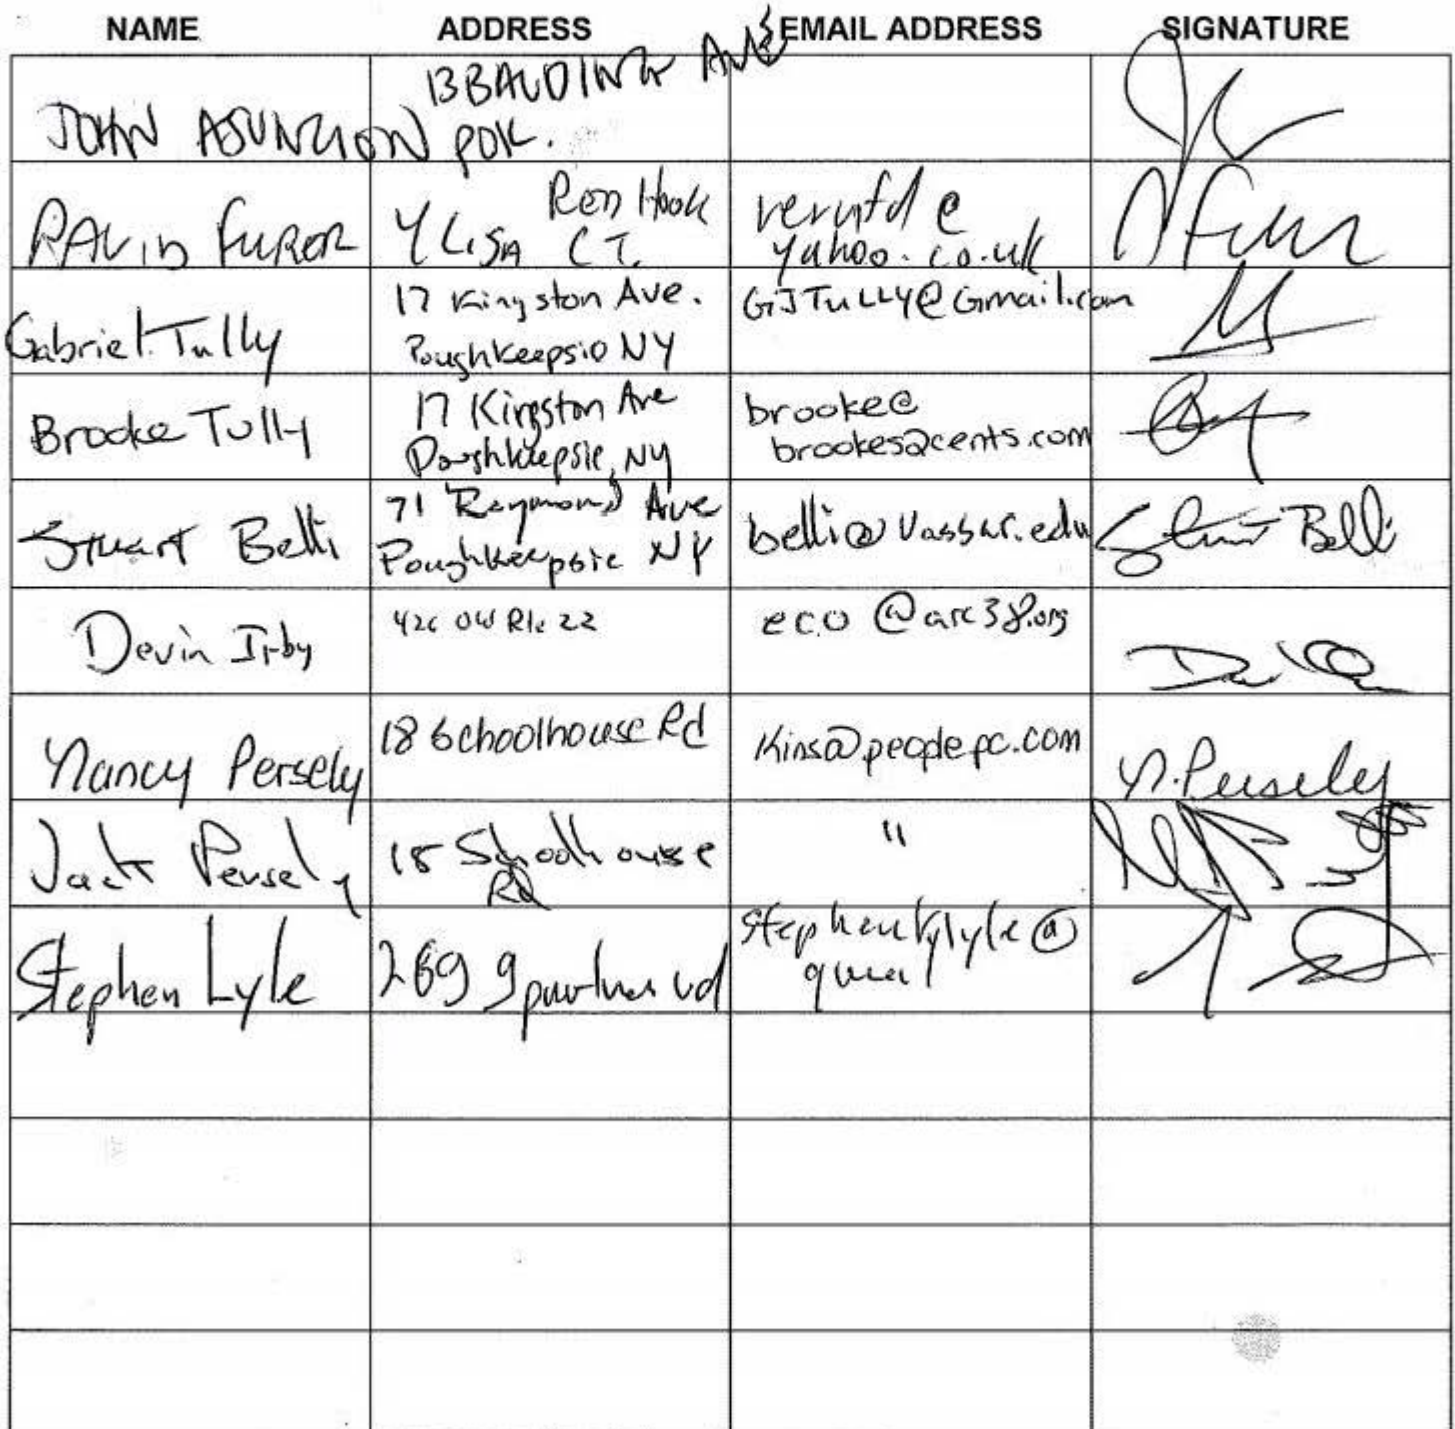 NAME ADDRESS EMAIL ADDRESS SIGNATURE
13 BALDING AVE
JOHN ASUNCION POK.
Red Hook
4 LISA CT.
yahoo.co.uk
Gabriel Tully
17 Kingston Ave.
Poughkeepsie NY
GJTULLY@Gmail.com
Brooke Tully
17 Kingston Ave
Poughkeepsie, NY
brooke@
brookes2cents.com
Stuart Belli
71 Raymond Ave
Poughkeepsie NY
belli@vassar.edu
Stuart Belli
Devin Irby
Old Rte 22
eco@arc38.org
Nancy Persely
18 Schoolhouse Rd
Kins@peoplepc.com
N. Persely
Jack Persely
18 Schoolhouse
Rd
"
Stephen Lyle
269 9 partners rd
@